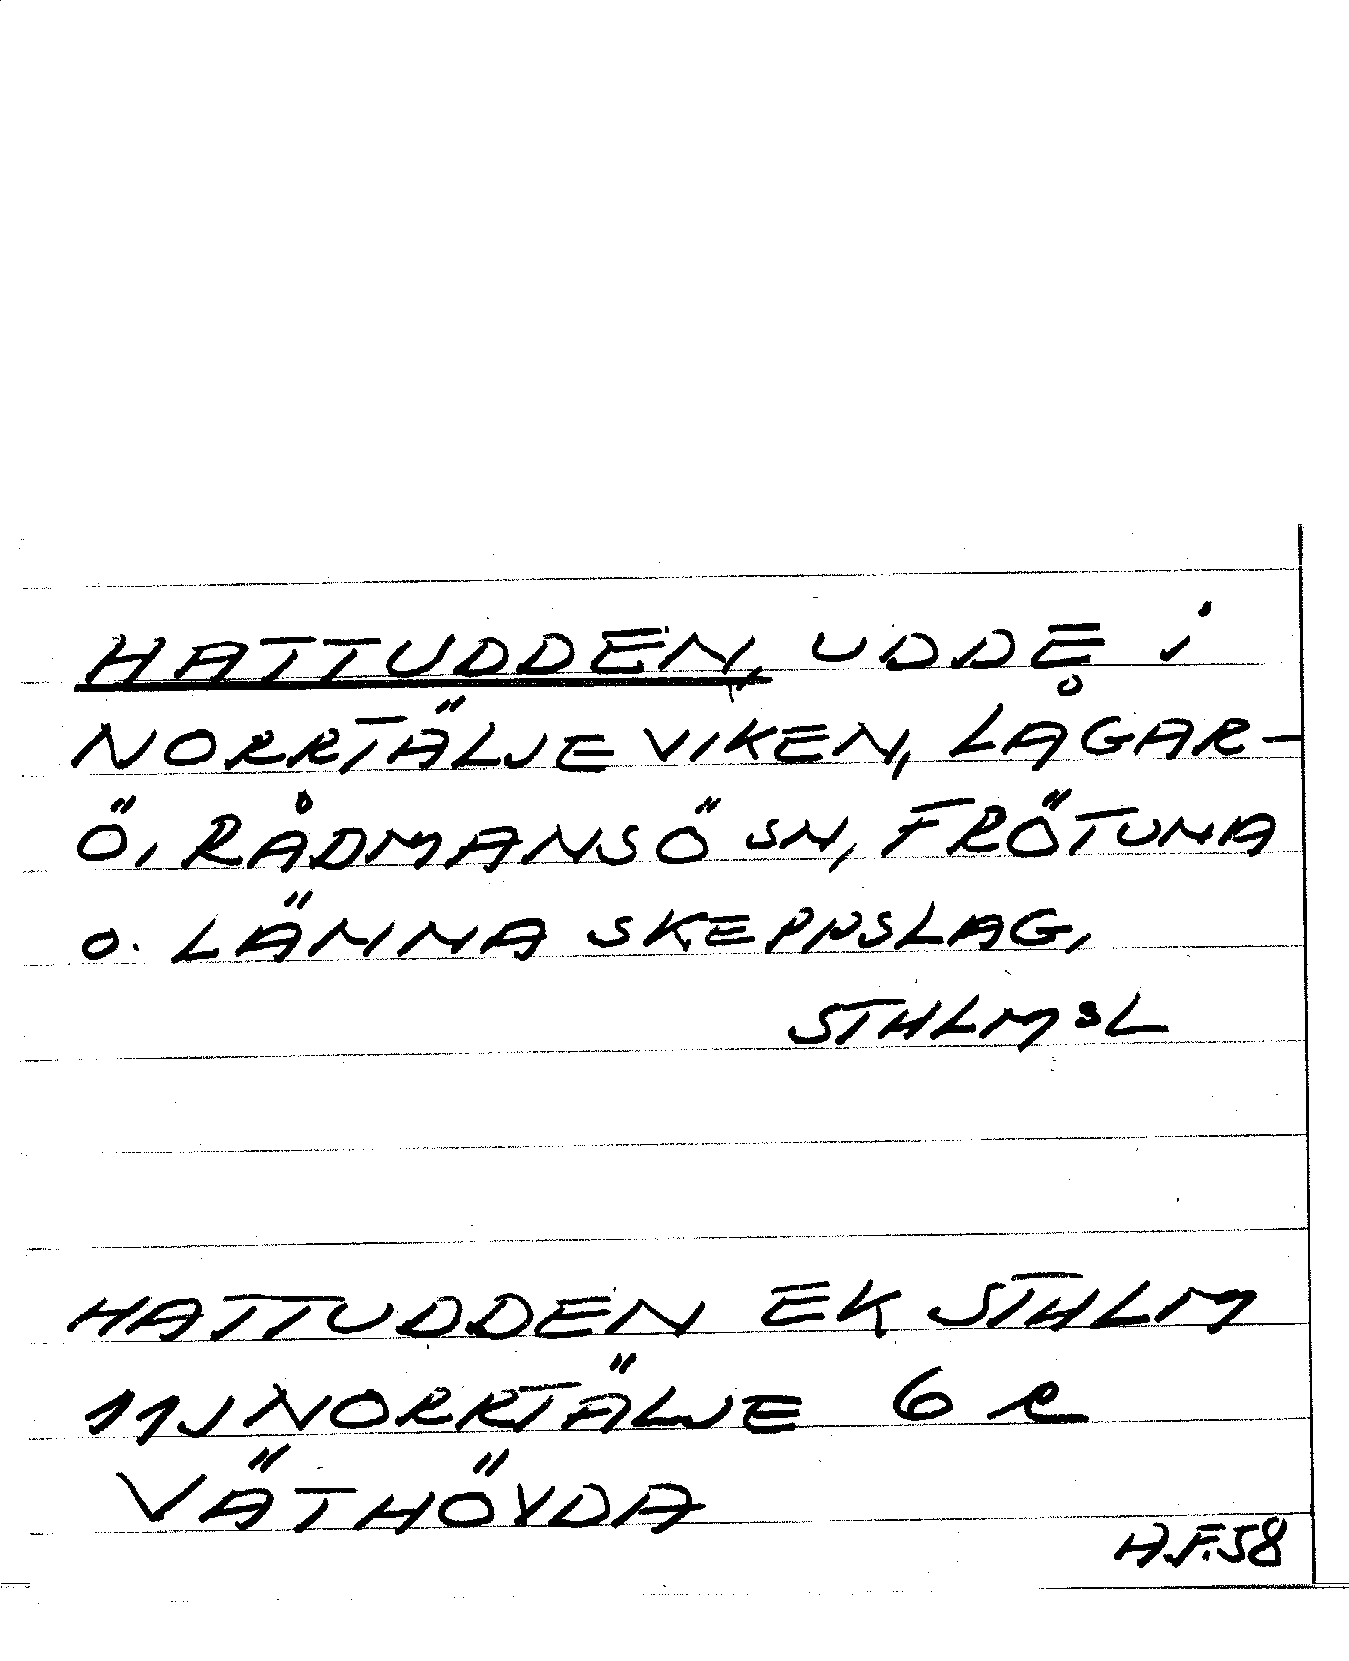 HATTUDDEN, UDDE i
NORRTÄLJEVIKEN, LÅGAR-
Ö, RÅDMANSÖ SN, FRÖTUNA
o. LÄNNA SKEPPSLAG,
STHLMSL
HATTUDDEN EK STHLM
11J NORRTÄLJE 6 e
VÄTHÖVDA
H.F.58